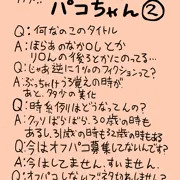 パコちゃん②
Q:何なのこのタイトル
A:ほらあのなかOLとか
リロんの後ろとかにのってる…
Q:じゃあ逆に1%のフィクションって?
A:ぶっちゃけうろ覚えの時が
あと多少の美化
Q:時系列はどうなってんの?
A:クソバラバラ。30歳の時も
あるし、31歳の時も32歳の時もある
Q:今はオフパコ募集してないんです?
A:今はしてません。すいません。